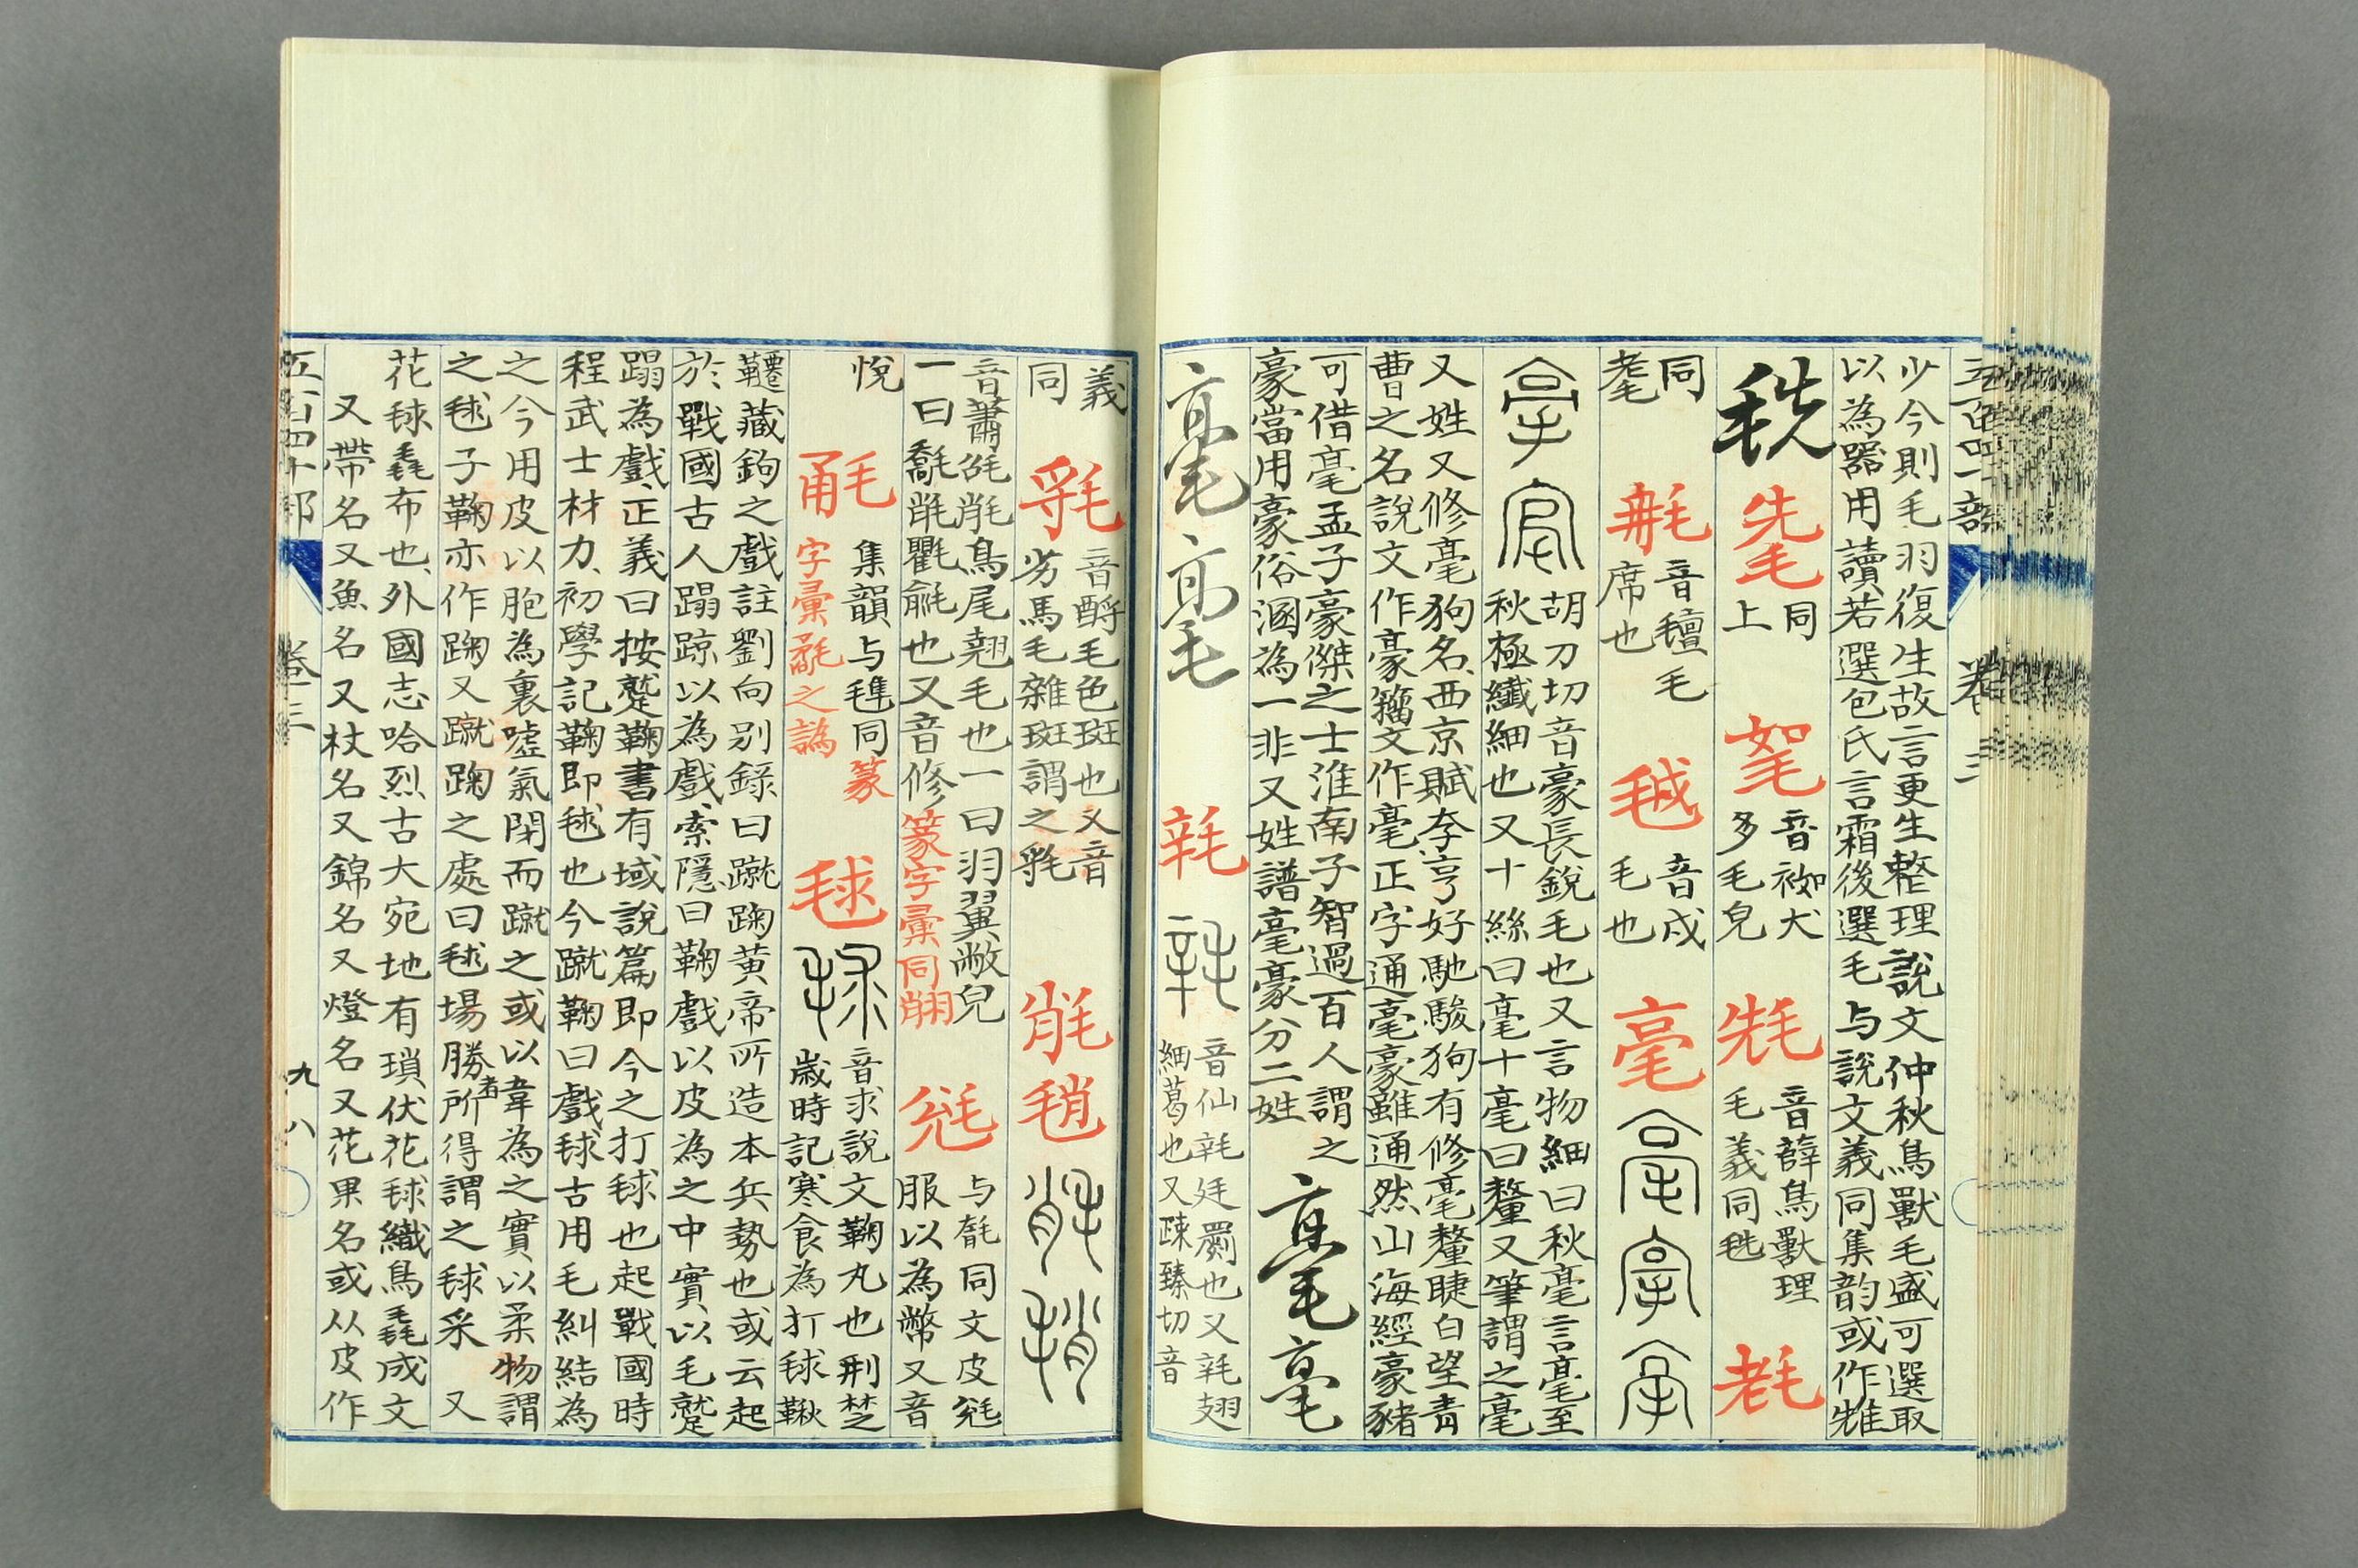 五百四十部 卷三
少今則毛羽復生故言更生整理說文仲秋鳥獸毛盛可選取
以為器用讀若選包氏言霜後選毛与說文義同集韵或作
毨 同上 音袽犬多毛皃 音薛鳥獸理毛義同毨 㲠
同耄 音氊毛席也 毧 音戎毛也 毫
胡刀切音豪長銳毛也又言物細曰秋毫言毫至
秋極纖細也又十絲曰毫十毫曰釐又筆謂之毫
又姓又修毫狗名西京賦李亨好馳駿狗有修毫釐睫白望青
曹之名說文作豪籀文作毫正字通毫豪雖通然山海經豪豬
可借毫孟子豪傑之士淮南子智過百人謂之
豪當用豪俗溷為一非又姓譜毫豪分二姓
毫 毫 毫 毫
音仙 廷罽也又 翅
細葛也又疎臻切音
義同
音酹毛色斑也又音
劣馬毛雜斑謂之
音簫 鳥尾翹毛也一曰羽翼敝皃
一曰 氍毹也又音修篆字彙同翢
与毻同文皮毻服以為幣又音悅
集韻与 同篆字彙 之譌
毬 音求說文鞠丸也荆楚歲時記寒食為打毬鞦
韆藏鉤之戲註劉向别錄曰蹴踘黄帝所造本兵勢也或云起
於戰國古人蹋踘以為戲索隱曰鞠戲以皮為之中實以毛蹵
蹋為戲正義曰按蹵鞠書有域說篇即今之打毬也起戰國時
程武士材力初學記鞠即毬也今蹴鞠曰戲毬古用毛糾結為
之今用皮以胞為裏噓氣閉而蹴之或以韋為之實以柔物謂
之毬子鞠亦作踘又蹴踘之處曰毬場勝者所得謂之毬采 又
花毬毳布也外國志哈烈古大宛地有瑣伏花毬織鳥毳成文
又帶名又魚名又杖名又錦名又燈名又花果名或从皮作
五百四十部 卷三 九八